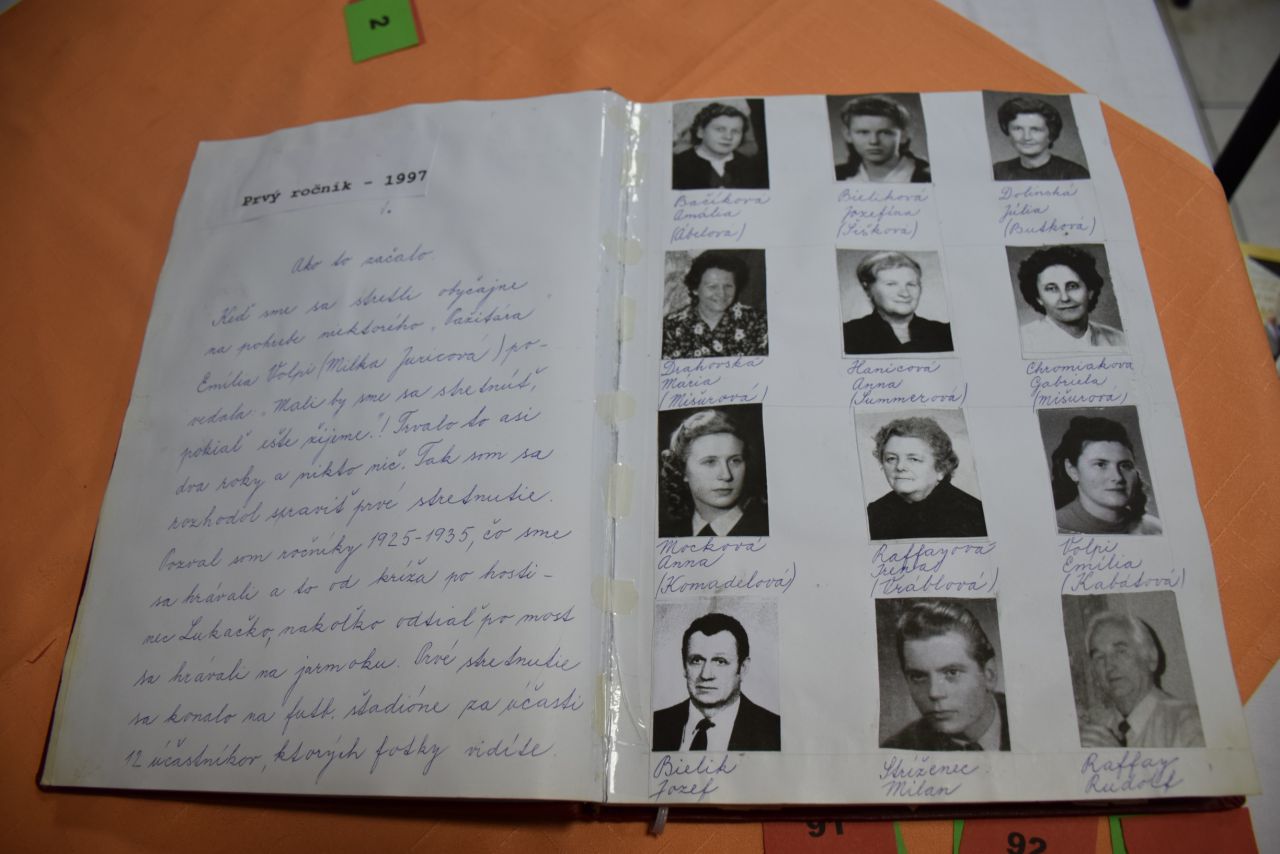 2
Prvý ročník - 1997
1.
Ako to začalo.
Keď sme sa stretli obyčajne
na pohrebe niektorého „Pažitára"
Emília Volpi (Milka Juricová) po-
vedala „Mali by sme sa stretnúť,
pokiaľ ešte žijeme."! Trvalo to asi
dva roky a nikto nič. Tak som sa
rozhodol spraviť prvé stretnutie.
Pozval som ročníky 1925-1935, čo sme
sa hrávali a to od kríža po hosti-
nec Lukačko, nakoľko odtiaľ po most
sa hrávali na jarmoku. Prvé stretnutie
sa konalo na futb. štadióne za účasti
12 účastníkov, ktorých fotky vidíte.
Bačíkova
Amália
(Ábelova)
Bieliková
Jozefína
(Šišková)
Dolinská
Júlia
(Butková)
Drahovská
Mária
(Mišurová)
Hanicová
Anna
(Summerová)
Chromiakova
Gabriela
(Mišurová)
Mocková
Anna
(Komadelová)
Raffayová
Trenkad
(Vráblová)
Volpi
Emília
(Kabátová)
Bielik
Jozef
Stríženec
Milan
Raffay
Rudolf
91
92